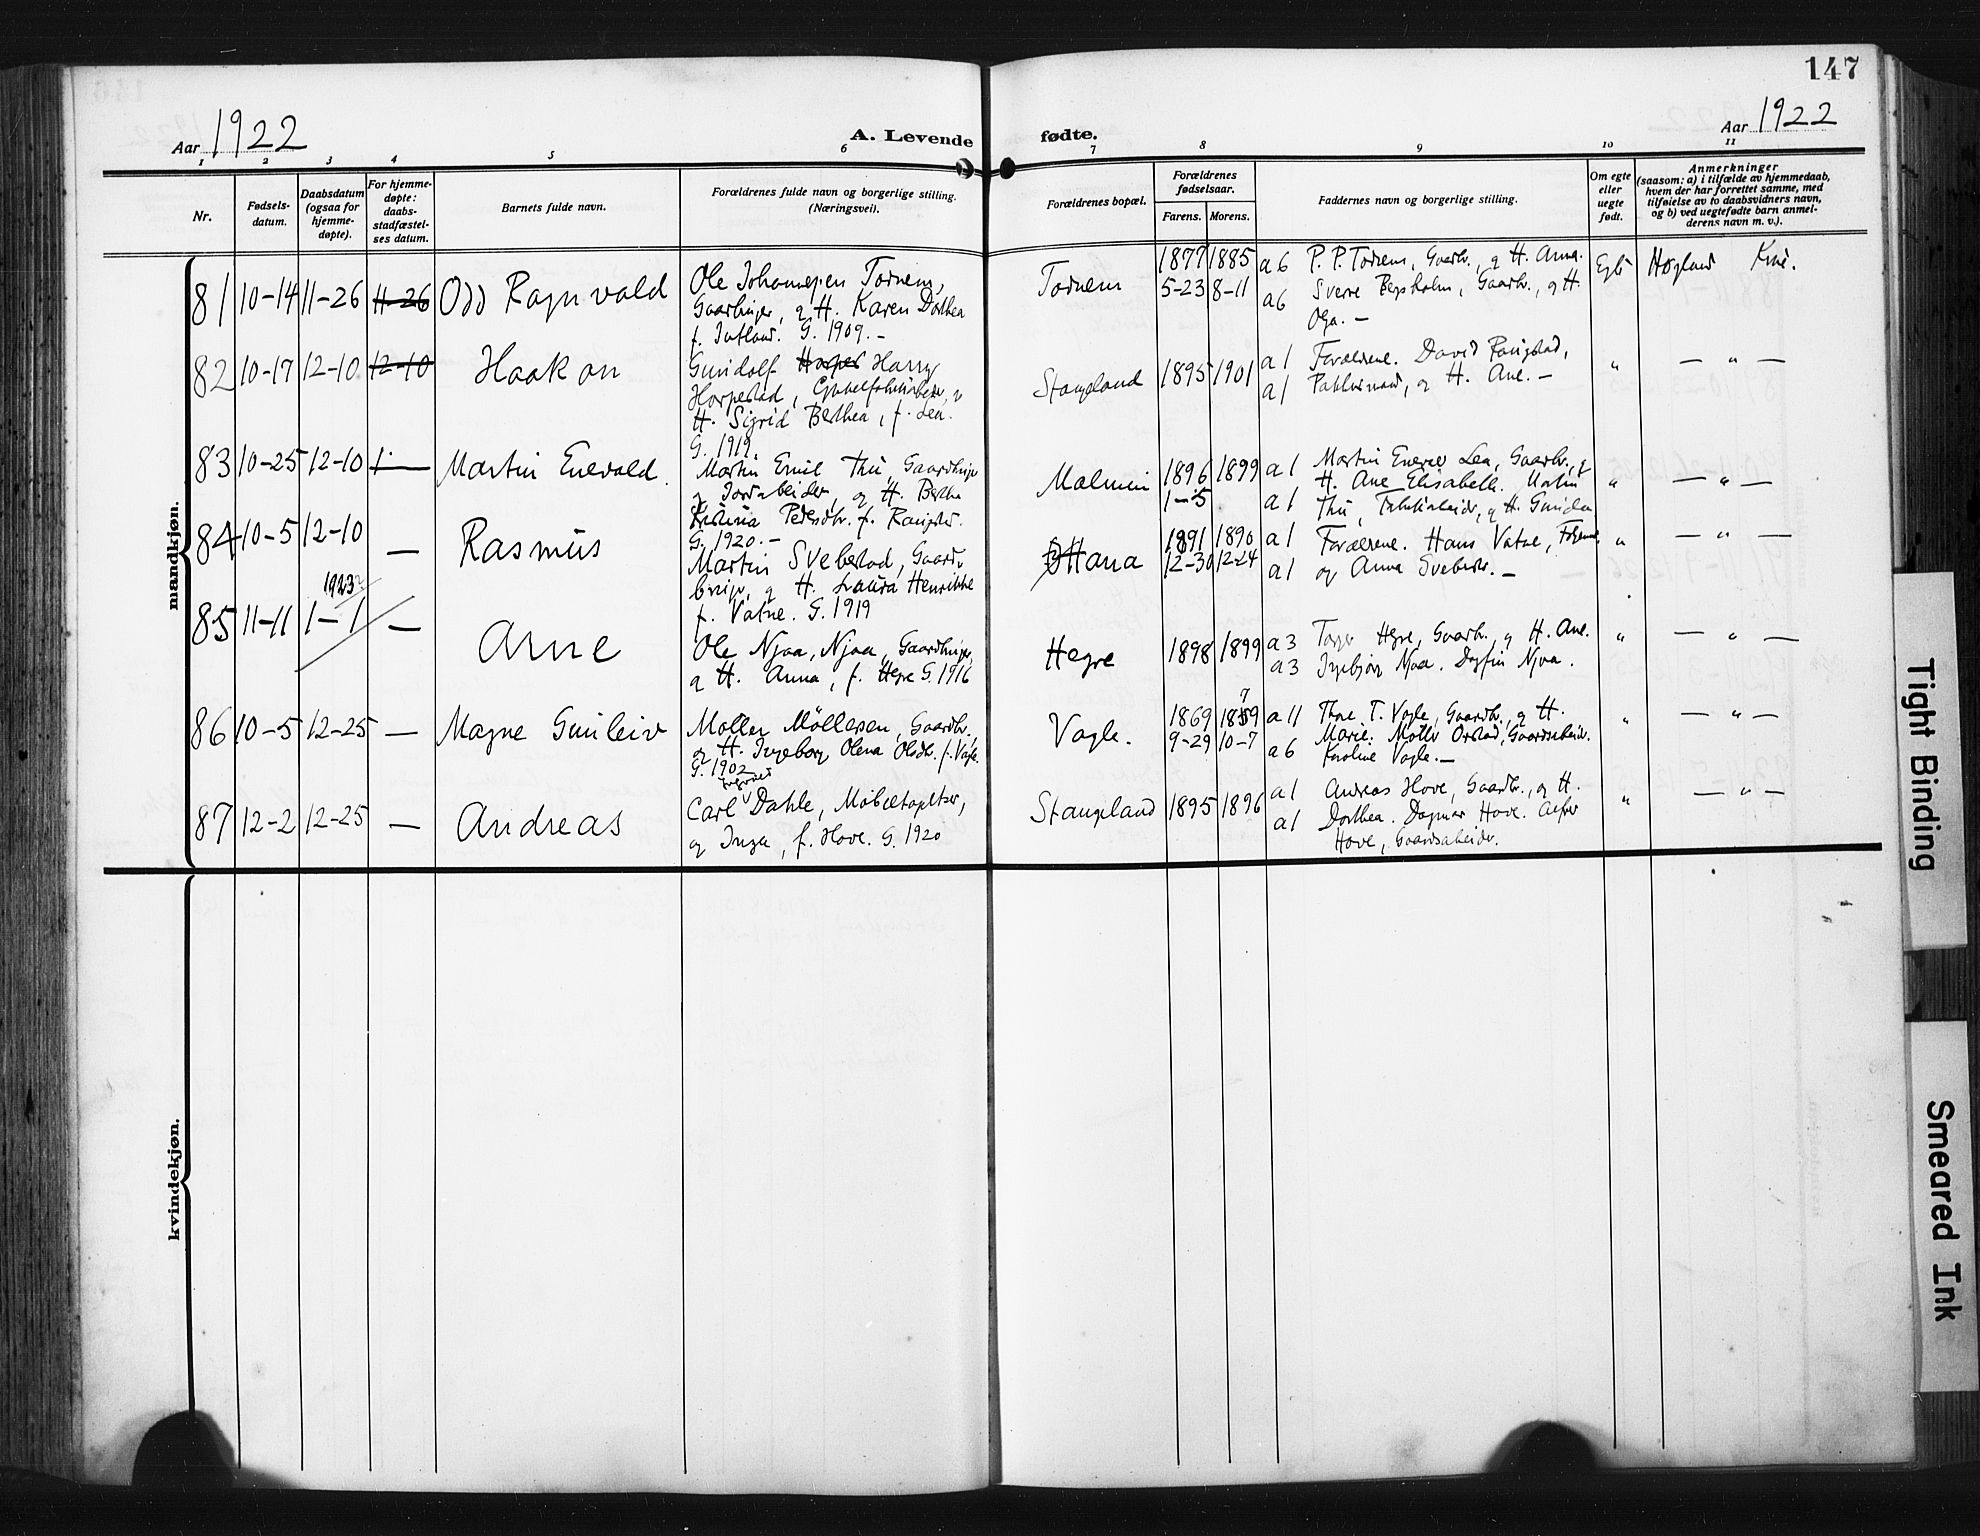 147
Aar 1922
A. Levende fødte.
Aar 1922
1 2 3 4 5 6 7 8 9 10 11
Nr.
Fødsels-
datum.
Daabsdatum
(ogsaa for
hjemme-
døpte).
For hjemme-
døpte:
daabs-
stadfæstel-
ses datum.
Barnets fulde navn.
Forældrenes fulde navn og borgerlige stilling.
(Næringsvei).
Forældrenes bopæl.
Forældrenes
fødselsaar.
Farens. Morens.
Faddernes navn og borgerlige stilling.
Om egte
eller
uegte
født.
Anmerkninger
(saasom: a) i tilfælde av hjemmedaab,
hvem der har forrettet samme, med
tilføielse av to daabsvidners navn,
og b) ved uegtefødte barn anmel-
derens navn m. v.).
mandkjøn.
81 10-14 11-26 11-26 Odd Ragnvald
Ole Johannesen Tornem,
Gaardbruger, g H. Karen Dorthea
f. Jutland. G. 1909. -
Tornem
1877 1885
5-23 8-11
a6 P. P. Tornem, Gaardbr., g H. Anna.
a6 Sverre Bergsholm, Gaardbr., g H.
Olga. -
Egte
Høgland
82 10-17 12-10 12-10 Haakon
Gundolf Harry
Horpestad,
H. Sigrid Berthea, f. Lea.
G. 1919.
Stangeland
1895 1901
a1 Forældrene. David
a1 g H. Ane. -
" — " —
83 10-25 12-10 — Martin Enevald.
Martin Emil Thu, Gaardbruger
g Jordarbeider, g H. Bertha
Kristina Pedersdtr. f.
G. 1920. -
Malmin
1896 1899
1-5
a1 Martin Enevald Lea, Gaardbr., g
H. Ane Elisabeth. Martin
a1 Thu, g H.
" — " —
84 10-5 12-10 — Rasmus
Martin Svebestad, Gaard-
bruger, g H. Laura Henrikke
f. Vatne. G. 1919
Hana
1891 1890
12-30 12-24
a1 Forældrene. Hans Vatne,
a1 og Anna
" — " —
1923
85 11-11 1-1 — Arne
Ole Njaa, Njaa, Gaardbruger,
g H. Anna, f. Hegre G. 1916
Hegre
1898 1899
a3 Hegre, Gaardbr., g H. Ane.
a3 Ingebjørg Njaa. Dagfin Njaa.
" — " —
86 10-5 12-25 — Magne Gunleiv
Møller Møllersen, Gaardbr.,
og H. Ingeborg Olena Olsdtr. f. Vagle.
G. 1902
Vagle.
1869 1879
9-29 10-7
a11 Thore T. Vagle, Gaardbr., g H.
Marie. Møller Orstad, Gaardsarbeider.
a6 Karoline Vagle. -
" — " —
87 12-2 12-25 — Andreas
Carl Dahle, Møbeltapetser,
og Inga, f. Hove. G. 1920
Stangeland
1895 1896
a1 Andreas Hove, Gaardbr., g H.
a1 Dorthea. Dagmar Hove.
Hove, Gaardsarbeider.
" — " —
kvindekjøn.
Tight Binding
Smeared Ink